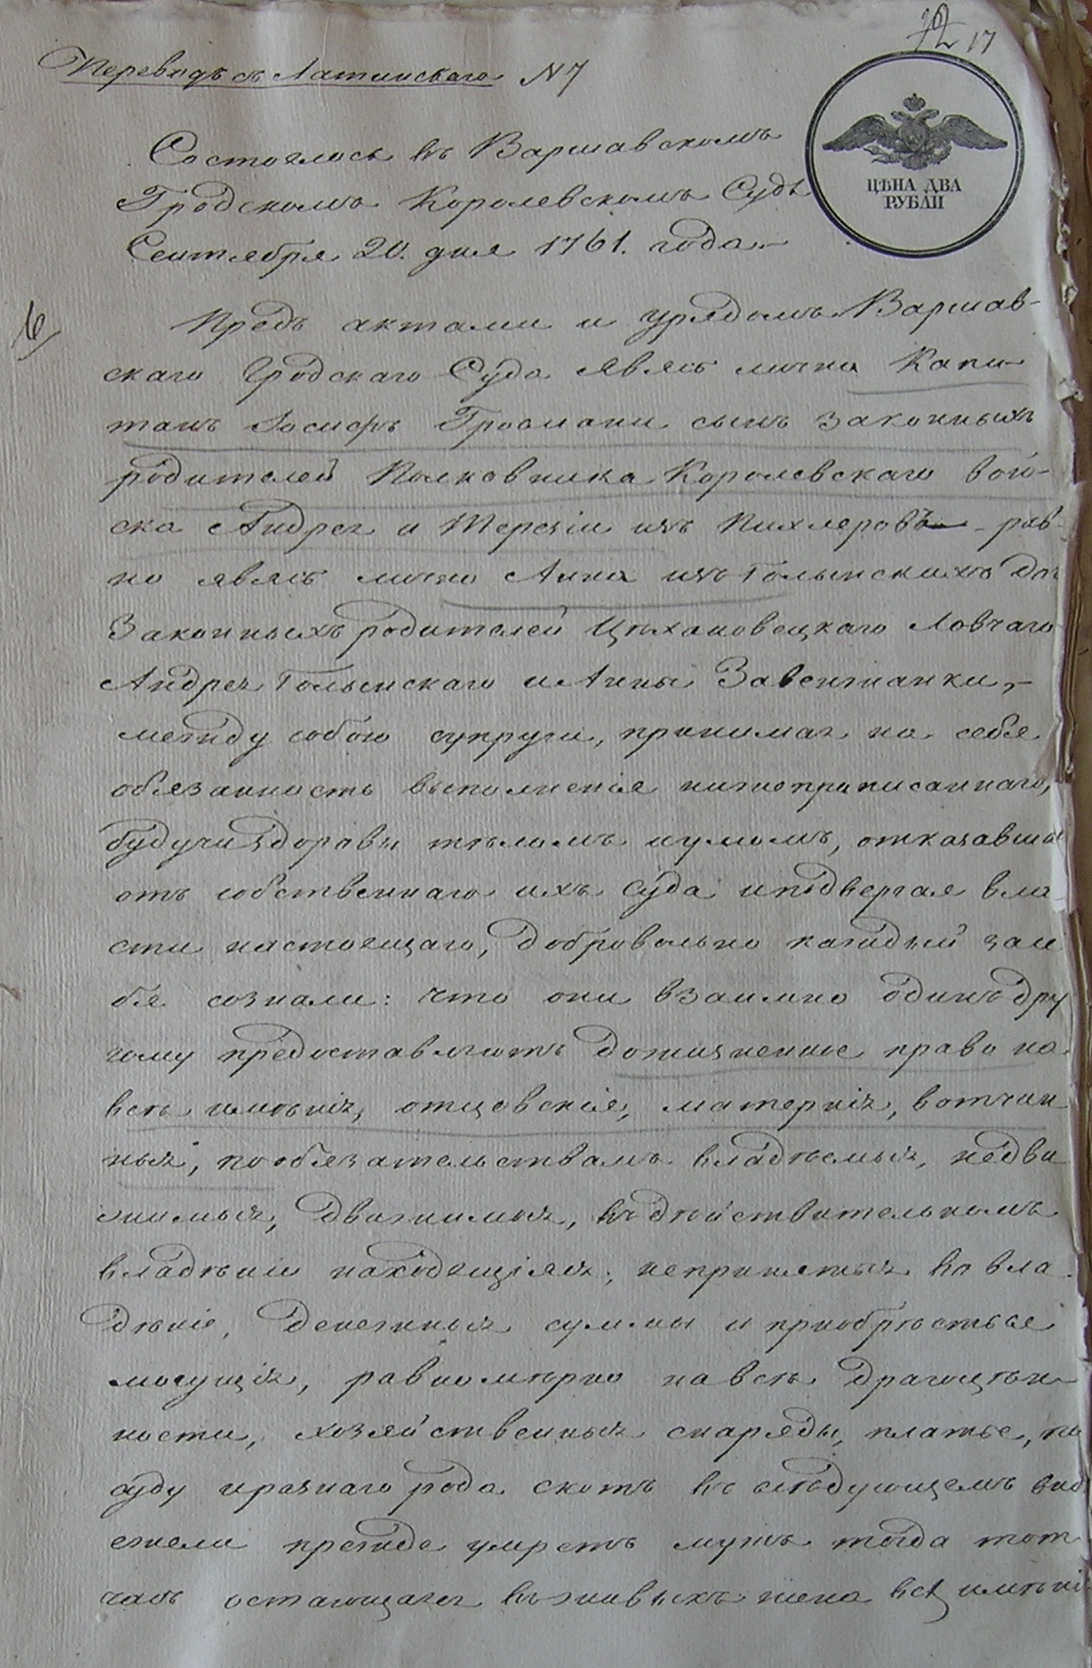 17
Переводъ съ Латинскаго N 7
ЦѢНА ДВА
РУБЛИ
Состоялось въ Варшавскомъ
Гродскомъ Королевскомъ Судѣ
Сентября 20. дня 1761. года.–
Предъ актами и урядомъ Варшав-
скаго Гродскаго Суда явясь лично Капи-
танъ Іосифъ Гросманн сынъ законныхъ
родителей Полковника Королевскаго Вой-
ска Андрея и Терезіи изъ Пихлеровъ – рав-
но явясь лично Анна изъ Голынскихъ доч
Законныхъ родителей Цѣхановецкаго Ловчаго
Андрея Голынскаго и Анны Завентанки, –
между собою супруги, принимая на себя
обязанность выполненія нижеприписаннаго,
будучи здоровы тѣломъ и умомъ, отказавшись
отъ собственнаго ихъ Суда и подвергая вла
сти настоящаго, добровольно каждый за се
бя сознали: что они взаимно одинъ дру
гому предоставляютъ дожизненное право на
всѣ имѣнія, отцовскія, матернія, вотчин
ныя, по обязательствамъ владѣемыя, недви
жимыя, движимыя, въ дѣйствительномъ
владѣніи находящіяся, непринятыя во вла
дѣніе, денежныя суммы и пріобрѣсться
могущія, равномѣрно на всѣ драгоцѣн
ности, хозяйственныя снаряды, платье, по
суду и разнаго рода скотъ въ слѣдующемъ видѣ
ежели прежде умретъ мужъ тогда тот
часъ остающаяся въ живыхъ жена всѣ имѣнія